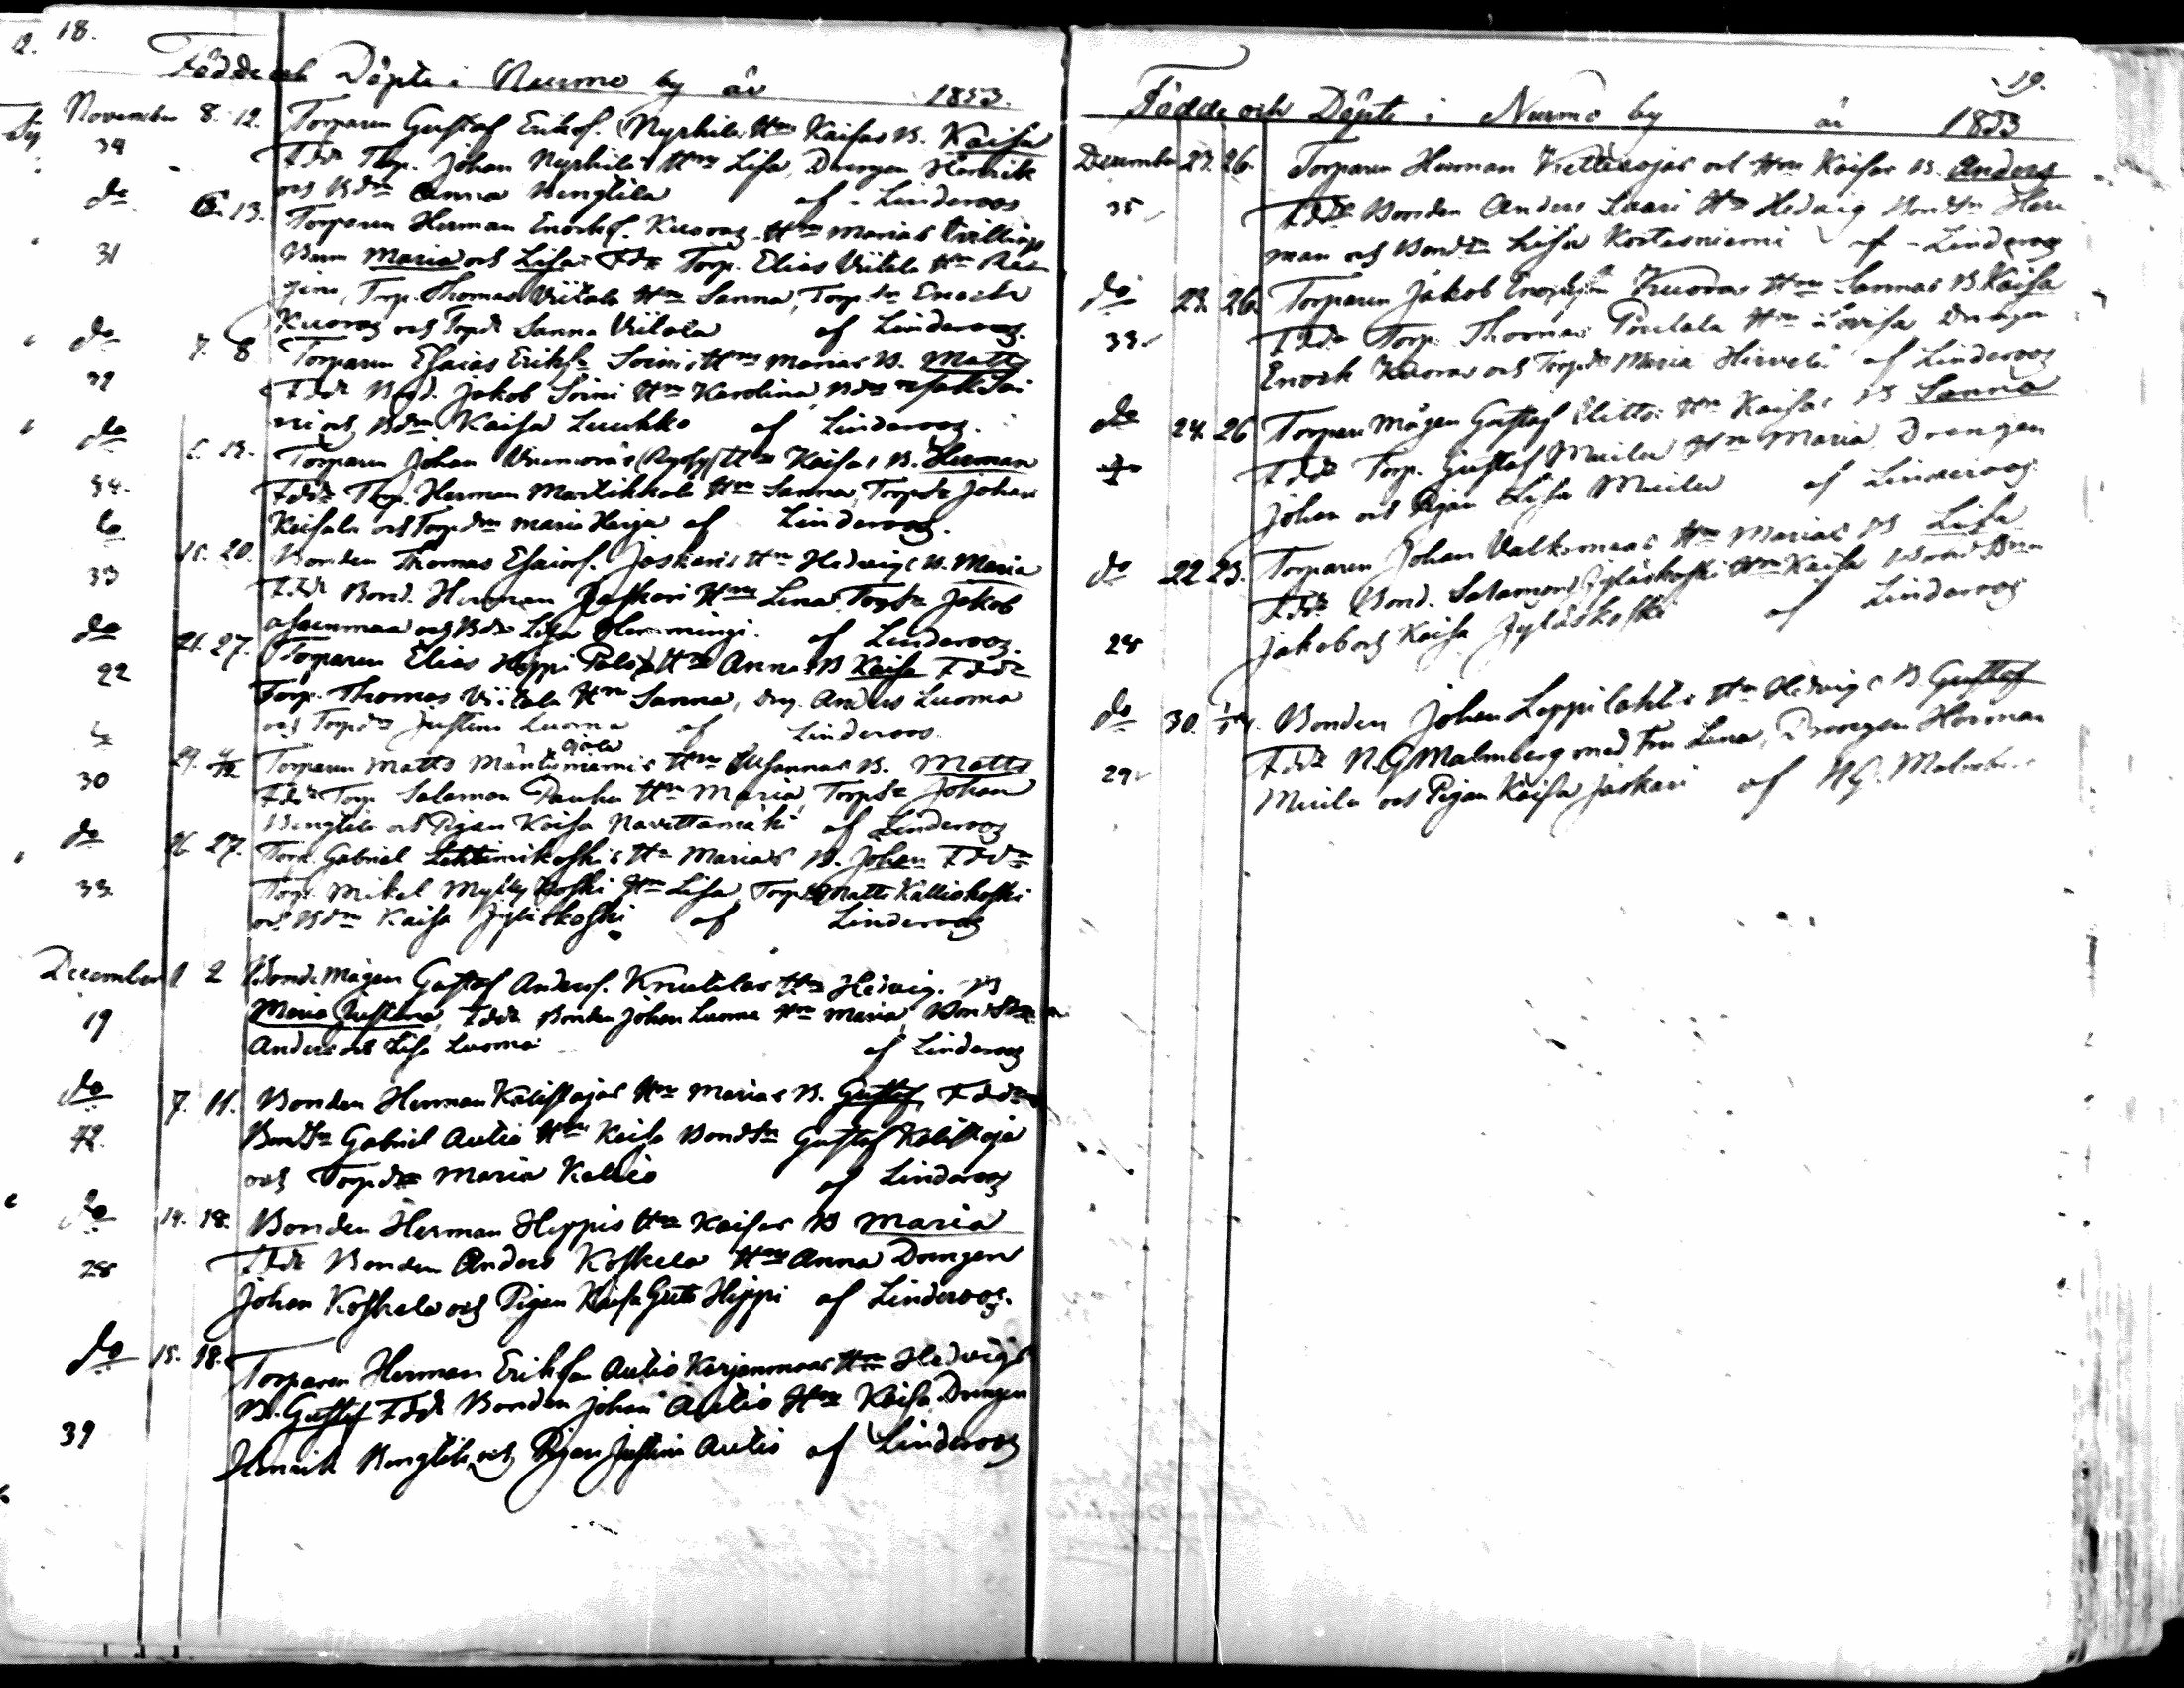 18.
Födde och Döpte i Nurmo by år 1853.
November 8. 12. Torparen Gustaf Eriksf. Nyrhilä Hm Kaisas B. Kaisa
34 Fddr Torp. Johan Nyrhilä Hm Lisa, Drengen Henrik
och Bdm Anna Bengtila af Linderoos
do 13. Torparen Herman Enochsf. Kuoras Hm Marias tvillings
31 Barn Maria och Lisa Fddr Torp. Elias Viitala Hm Re
gina, Torp. Thomas Viitala Hm Sanna, Torp. sn Enoch
Kuoras och Torpdr Sanna Viitala af Linderoos.
do 7. 8 Torparen Esaias Eriksn Soinis Hm Marias B. Matts
32 Fddr Bond. Jakob Soini Hm Karolina, Isak Soi
ni och Bdm Kaisa Luuhko af Linderoos.
do 13. Torparen Johan Hm Kaisas B. Herman
34. Fddr Torp. Herman Martikkala Hm Sanna, Torpsn Johan
Keisala och Torpdm Maria Harja af Linderoos.
do 15. 20. Bonden Thomas Esaiasf. Jaskaris Hm Hedvigs B. Maria
33 Fddr Bond. Herman Jaskari Hm Lena, Torpsn Jakob
Assenmaa och Bdr Lisa Hemmingi. af Linderoos.
do 21. 27. Torparen Elias Hippi Hm Annas B Kaisa Fddr
22 Torp. Thomas Viitala Hm Sanna, Drg. Anders Luoma
och Torpdr Justina Luoma af Linderoos.
do 29. 4/12 Torparen Matts Mäntiniemis Hm Susannas B. Matts
30 Fddr Torp. Salamon Pauha Hm Maria, Torpsn Johan
Bengtila och Pigan Kaisa Navettamäki af Linderoos
do 26 27. Torp. Gabriel Lehtimikoskis Hm Marias B. Johan Fddr
33. Torp. Mikel Myllykoski Hm Lisa, Torpsn Matts Kalliokoski
och Bdm Kaisa Jyläskoski af Linderoos
December 1 2 Bondemågen Gustaf Andersf. Knuutilas Hm Hedvig. B
19 Maria Justina, Fddr Bonden Johan Luoma Hm Maria, Bondsn
Anders och Lisa Luoma af Linderoos
do 7. 11. Bonden Herman Kalistajas Hm Marias B. Gustaf, Fddr
42. Bondsn Gabriel Autio Hm Kaisa Bondsn Gustaf Kalistaja
och Torpdr Maria Kallio af Linderoos
do 14. 18. Bonden Herman Hippis Hm Kaisas B Maria
28 Fddr Bonden Anders Koskela Hm Anna Drengen
Johan Koskela och Pigan Kaisa Greta Hippi af Linderoos.
do 15. 18. Torparen Herman Eriksson Autio Karjanmaas Hm Hedvigs
B. Gustaf Fddr Bonden Johan Autio Hm Kaisa, Drengen
39 Henrik Bengtila och Pigan Justina Autio af Linderoos
19.
Födde och Döpte i Nurmo by år 1853
December 23. 26. Torparen Herman Viettiäojas och Hm Kaisas B. Anders
35 Fddr Bonden Anders Laari Hm Hedvig Bondsn Her
man och Bonddr Lisa Kortesniemi af Linderoos
do 23. 26. Torparen Jakob Enochsson Kuoras Hm Sannas B Kaisa
33 Fddr Torp. Thomas Poutala Hm Lovisa Drengen
Enoch Kuoras och Torpdr Maria Hirvelä af Linderoos
do 24. 26 Torparemågen Gustaf Hm Kaisas B Sanna
Fddr Torp. Gustaf Muilu Hm Maria Drengen
Johan och Pigan Lisa Muilu af Linderoos
do 22 23. Torparen Johan Valkomaas Hm Marias B Lisa
Fddr Bond. Salamon Jyläskoski Hm Kaisa
28 Jakob och Kaisa Jyläskoski af Linderoos
do 30. Bonden Johan Leppilahtis Hm Hedvigs B. Gustaf
Fddr N.G Malmberg med fru Lena, Drengen Herman
29 Muilu och Pigan Kaisa Jaskari af NG. Malmberg